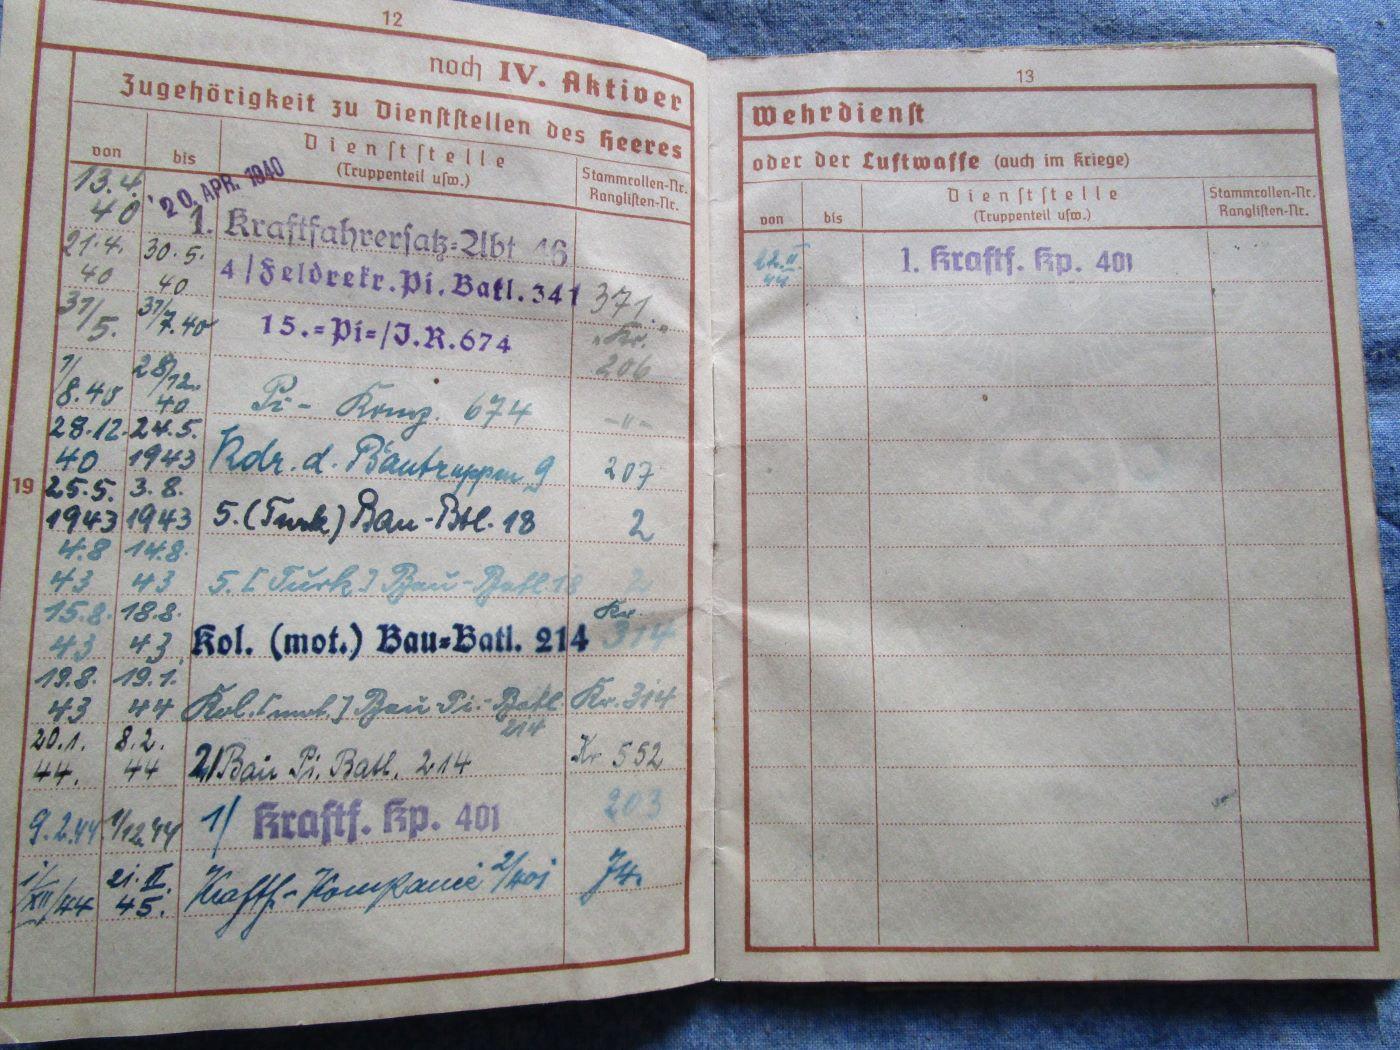 12
noch IV. Aktiver
Zugehörigkeit zu Dienststellen des Heeres
von bis Dienststelle (Truppenteil usw.) Stammrollen-Nr. Ranglisten-Nr.
13.4. 40 20. APR. 1940 1. Kraftfahrersatz=Abt 46
21.4. 40 30.5. 40 4/Feldrekr.Pi.Batl.341 371.
31/5. 31/7.40 15.=Pi=/J.R.674 "Kr." 206
1/8.40 28/12. 40 Pi- 674 -"-
28.12. 40 24.5. 1943 Kdr. d. Bautruppen 9 207
19
25.5. 1943 3.8. 1943 5.(Turk) Bau-Btl. 18 2
4.8 43 14.8. 43 5.[Turk.] Bau-Batl 18 2
15.8. 43 18.8. 43 Kol. (mot.) Bau=Batl. 214 Kr. 314
19.8. 43 19.1. 44 Kol.[mot.] Bau Pi.-Batl. 214 Kr. 314
20.1. 44. 8.2. 44 2/Bau Pi. Batl. 214 Kr 552
9.2.44 1/12.44 1/ Kraftf. Kp. 401 203
1/XII/44 21.II. 45. Kraftf.-Kompanie 2/401 74.
13
Wehrdienst
oder der Luftwaffe (auch im Kriege)
von bis Dienststelle (Truppenteil usw.) Stammrollen-Nr. Ranglisten-Nr.
44 1. Kraftf. Kp. 401